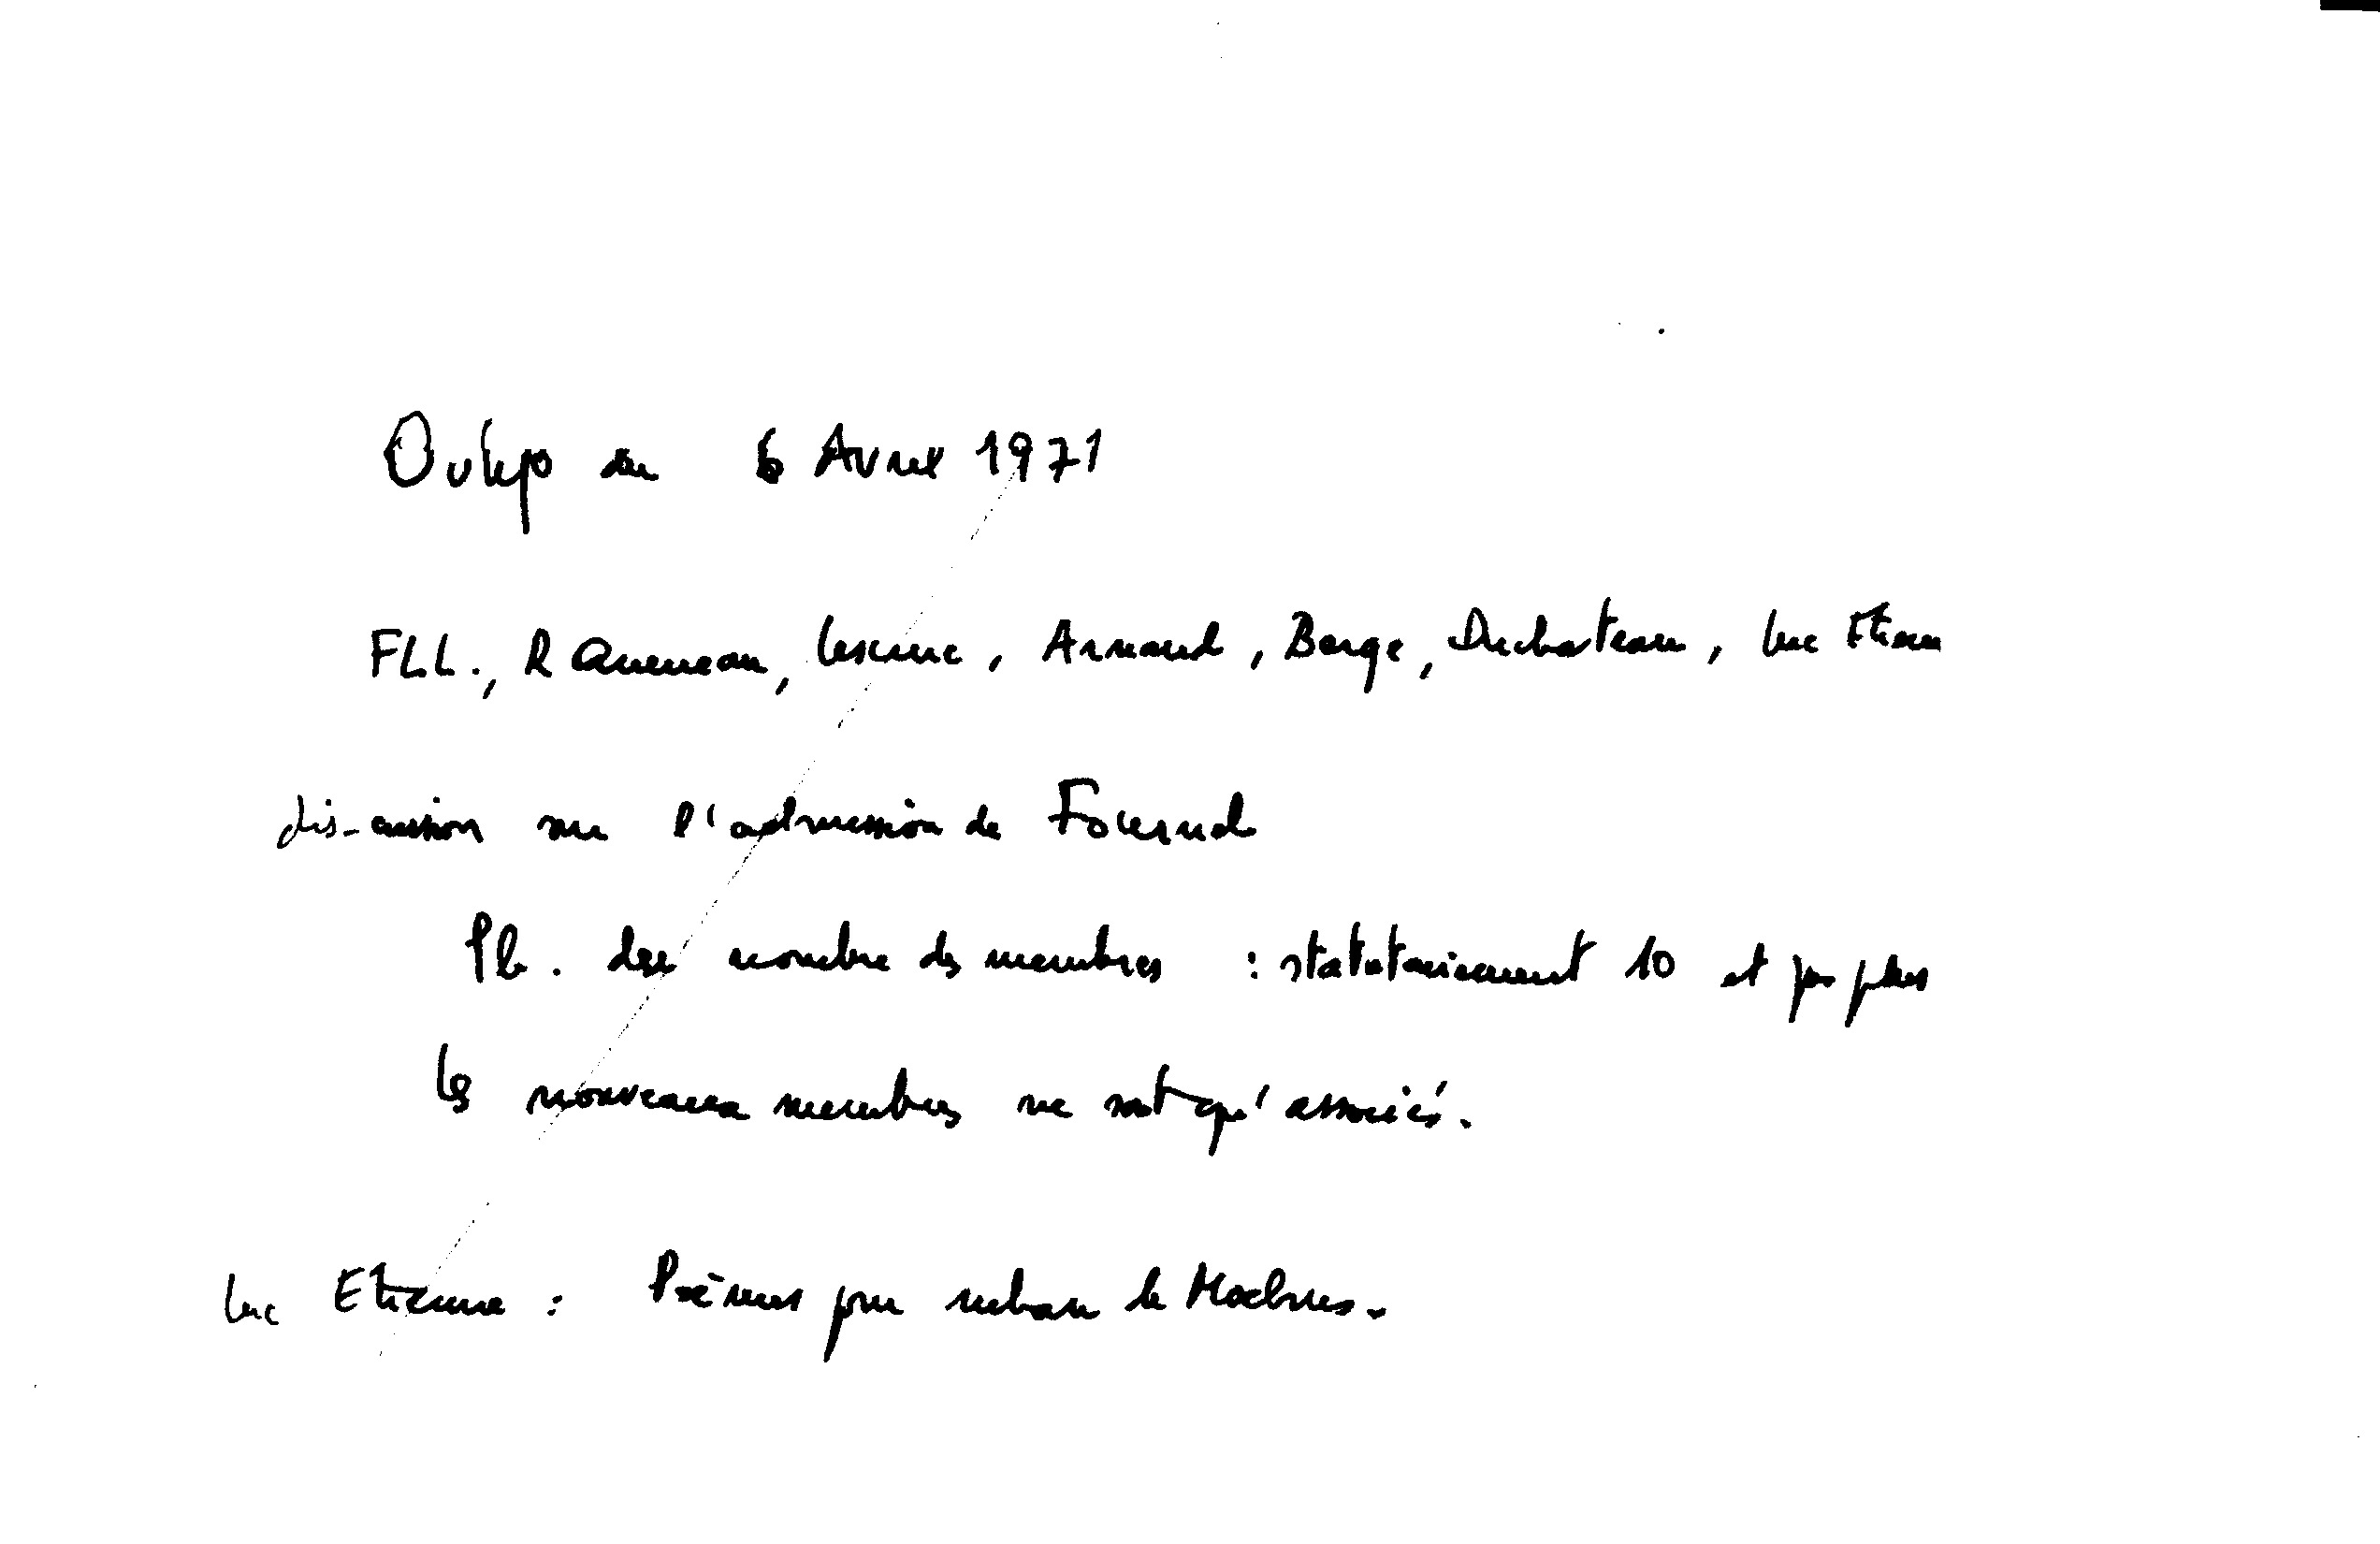 Oulipo du 6 Avril 1971
FLL., R Queneau, Lescure, Arnaud, Berge, Duchateau, Luc Etienne
discussion sur l'admission de Fournel
Pb. du nombre des membres : statutairement 10 et pas plus
les nouveaux membres ne sont qu'associés.
Luc Etienne : Poèmes pour ruban de Moebius.